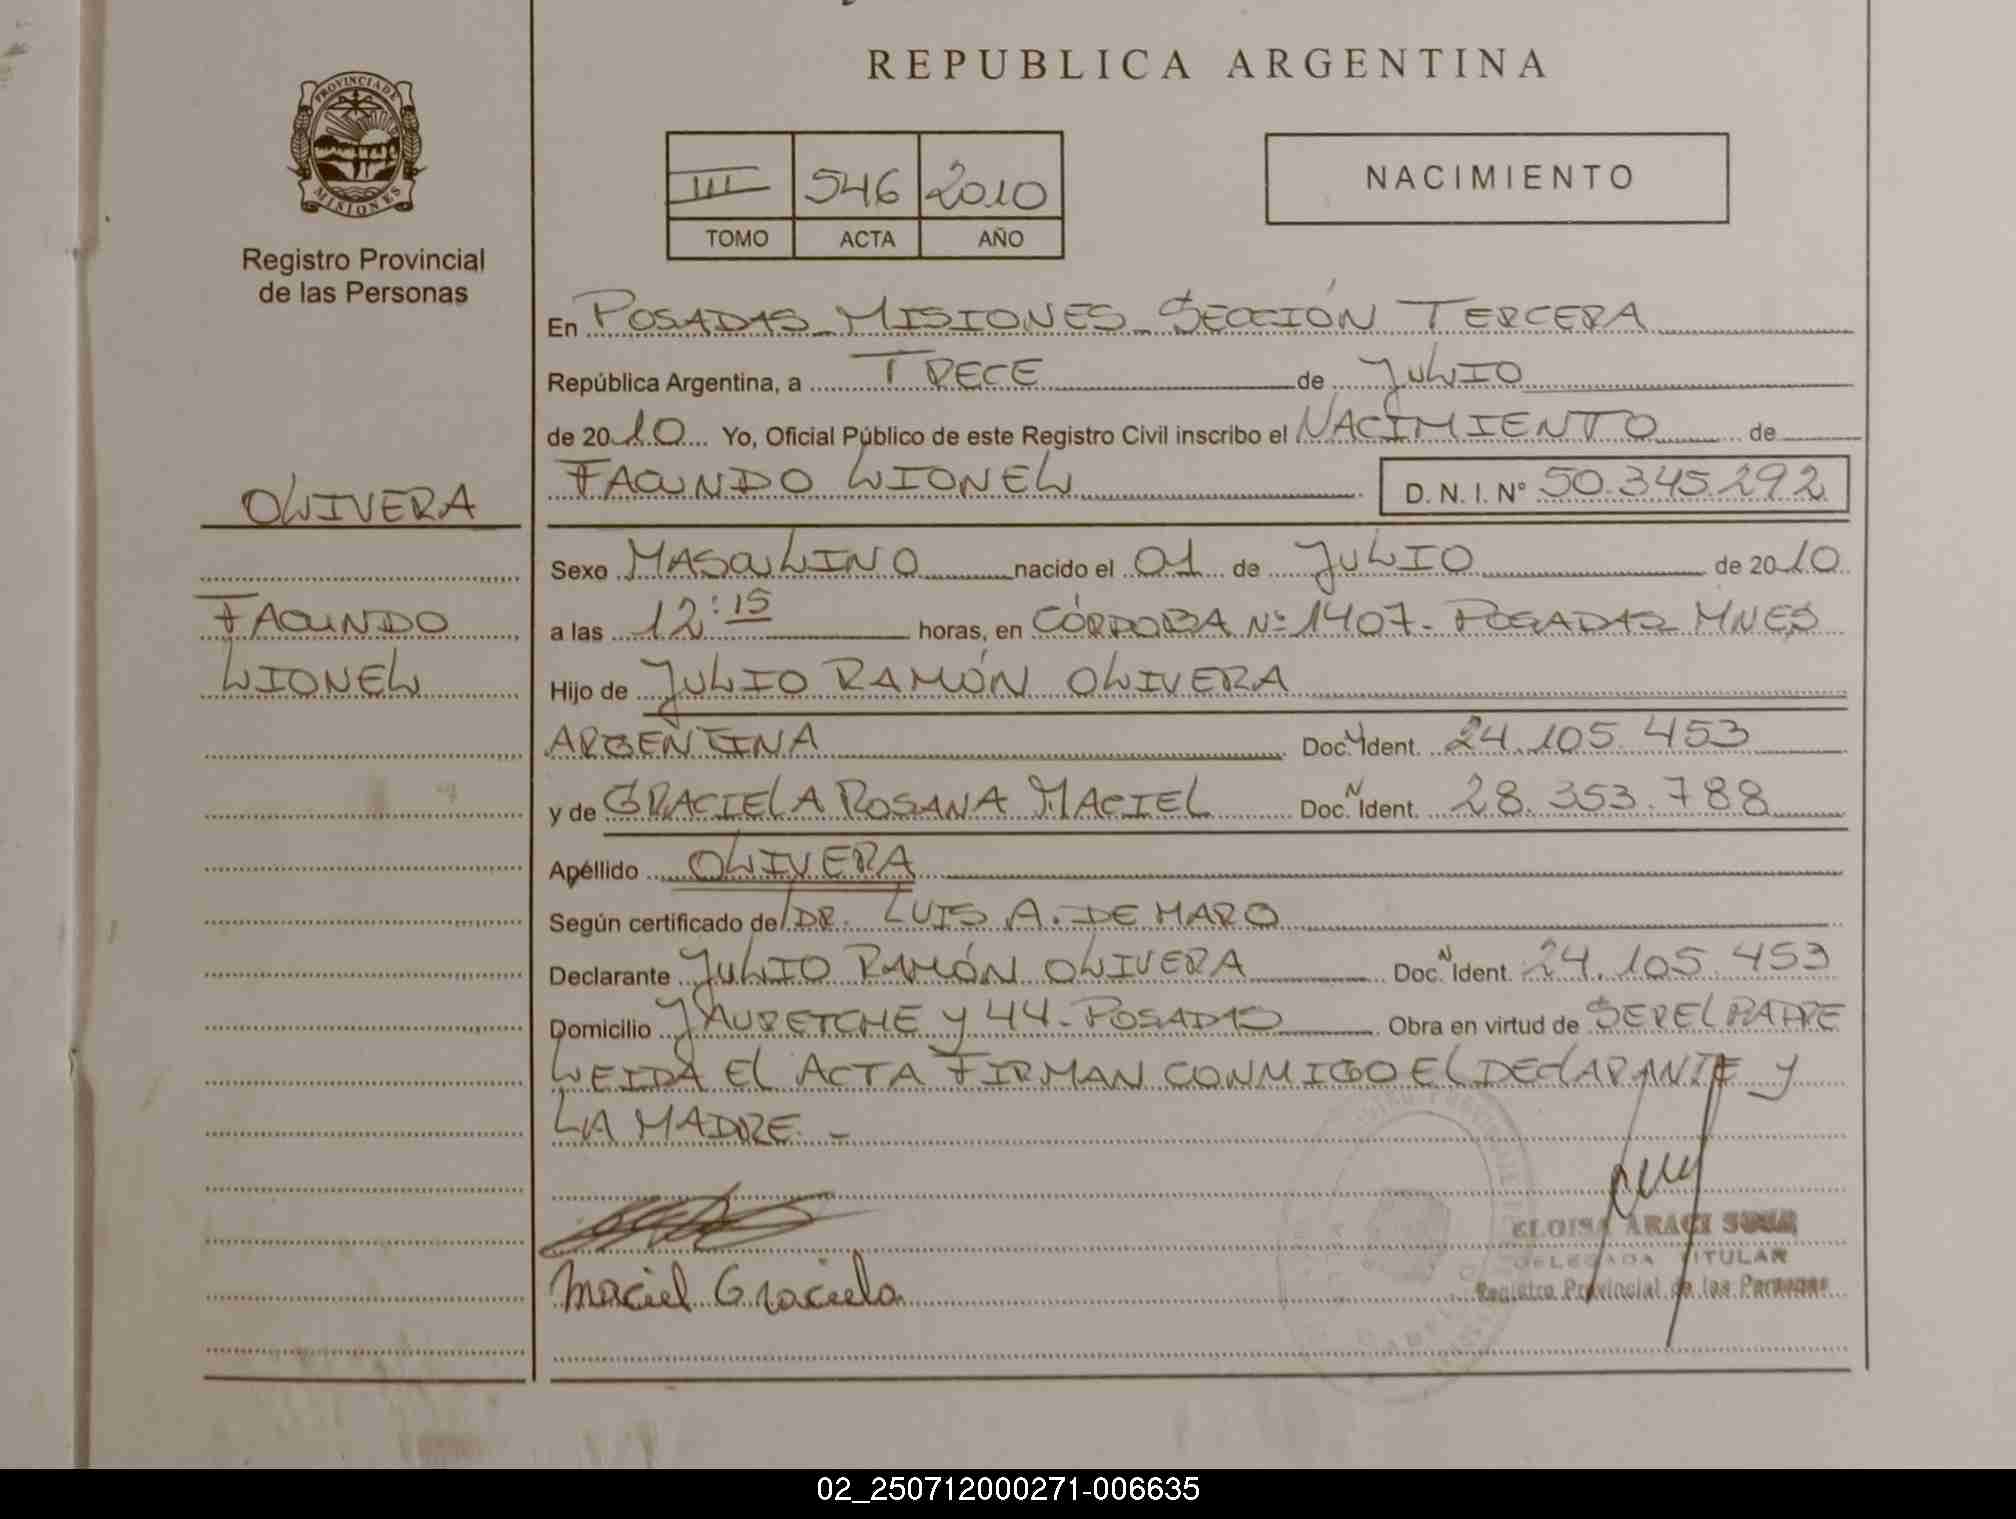 REPUBLICA ARGENTINA
PROVINCIA DE
MISIONES
Registro Provincial
de las Personas
III 546 2010
TOMO ACTA AÑO
NACIMIENTO
En POSADAS - MISIONES - SECCIÓN TERCERA
República Argentina, a TRECE de JULIO
de 2010 Yo, Oficial Público de este Registro Civil inscribo el NACIMIENTO de
FACUNDO LIONEL D. N. I. N° 50.345.292
OLIVERA
FACUNDO
LIONEL
Sexo MASCULINO nacido el 01 de JULIO de 2010
a las 12:15 horas, en CÓRDOBA Nº 1407 - POSADAS MNES
Hijo de JULIO RAMÓN OLIVERA
ARGENTINA Doc. Ident. 24.105.453
y de GRACIELA ROSANA MACIEL Doc. N Ident. 28.353.788
Apellido OLIVERA
Según certificado de DR. LUIS A. DE MARO
Declarante JULIO RAMÓN OLIVERA Doc. N Ident. 24.105.453
Domicilio JAURETCHE Y 44 - POSADAS Obra en virtud de SER EL PADRE
LEIDA EL ACTA FIRMAN CONMIGO EL DECLARANTE Y
LA MADRE. -
Maciel Graciela
ELOISA ARACI
DELEGADA TITULAR
Registro Provincial de las Personas
02_250712000271-006635